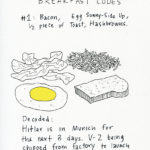 BREAKFAST CODES
#1: Bacon, Egg Sunny-Side Up,
1/2 piece of Toast, Hashbrowns.
Decoded:
Hitler is in Munich for
the next 3 days. V-2 being
shipped from factory to launch